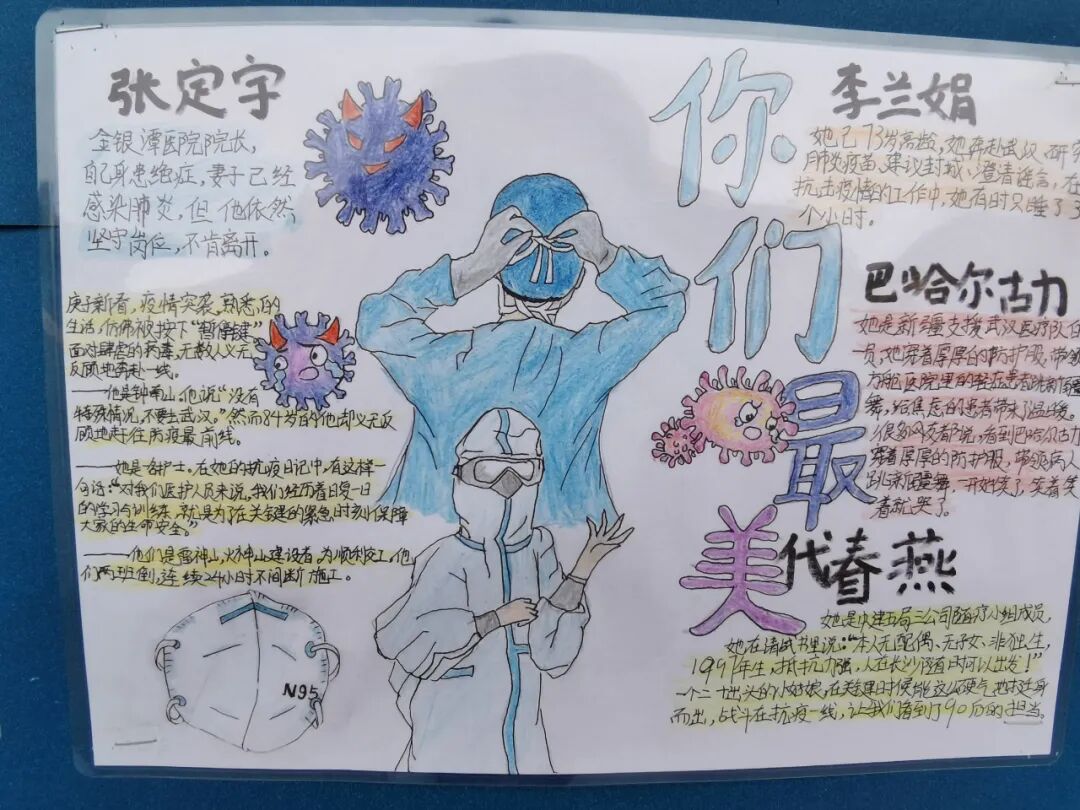 张定宇
金银潭医院院长,
自身患绝症,妻子已经
感染肺炎,但他依然
坚守岗位,不肯离开。
庚子新春,疫情突袭,熟悉的
生活,仿佛被按下"暂停键"
面对肆虐的病毒,无数人义无
反顾地奔赴一线。
——他是钟南山,他说"没有
特殊情况,不要去武汉。"然而84岁的他却义无反
顾地赶往防疫最前线。
——她是名护士。在她的抗疫日记中,有这样一
句话:"对我们医护人员来说,我们经历着日复一日
的学习与训练,就是为了在关键的紧急时刻保障
大家的生命安全。"
——他们是雷神山火神山建设者。为顺利交工,他
们两班倒,连续24小时不间断施工。
N95
你们最美
李兰娟
她已73岁高龄,她奔赴武汉,研究
肺炎疫苗、建议封城、澄清谣言,在
抗击疫情的工作中,她有时只睡了3
个小时。
巴哈尔古力
她是新疆支援武汉医疗队队
员,她穿着厚厚的防护服,带领
方舱医院里的轻症患者跳新疆
舞,给焦虑的患者带来了温暖。
很多网友都说,看到巴哈尔古力
穿着厚厚的防护服,带领病人
们,一开始笑了,笑着笑
着就哭了。
代春燕
她是中建五局三公司医疗小组成员,
她在请战书里说:"本人无配偶、无子女、非独生,
1997年生,抵抗力强,人在长沙,随时可以出发!"
一个二十出头的小姑娘,在关键时候能这么硬气地挺身
而出,战斗在抗疫一线,让我们看到了90后的担当。